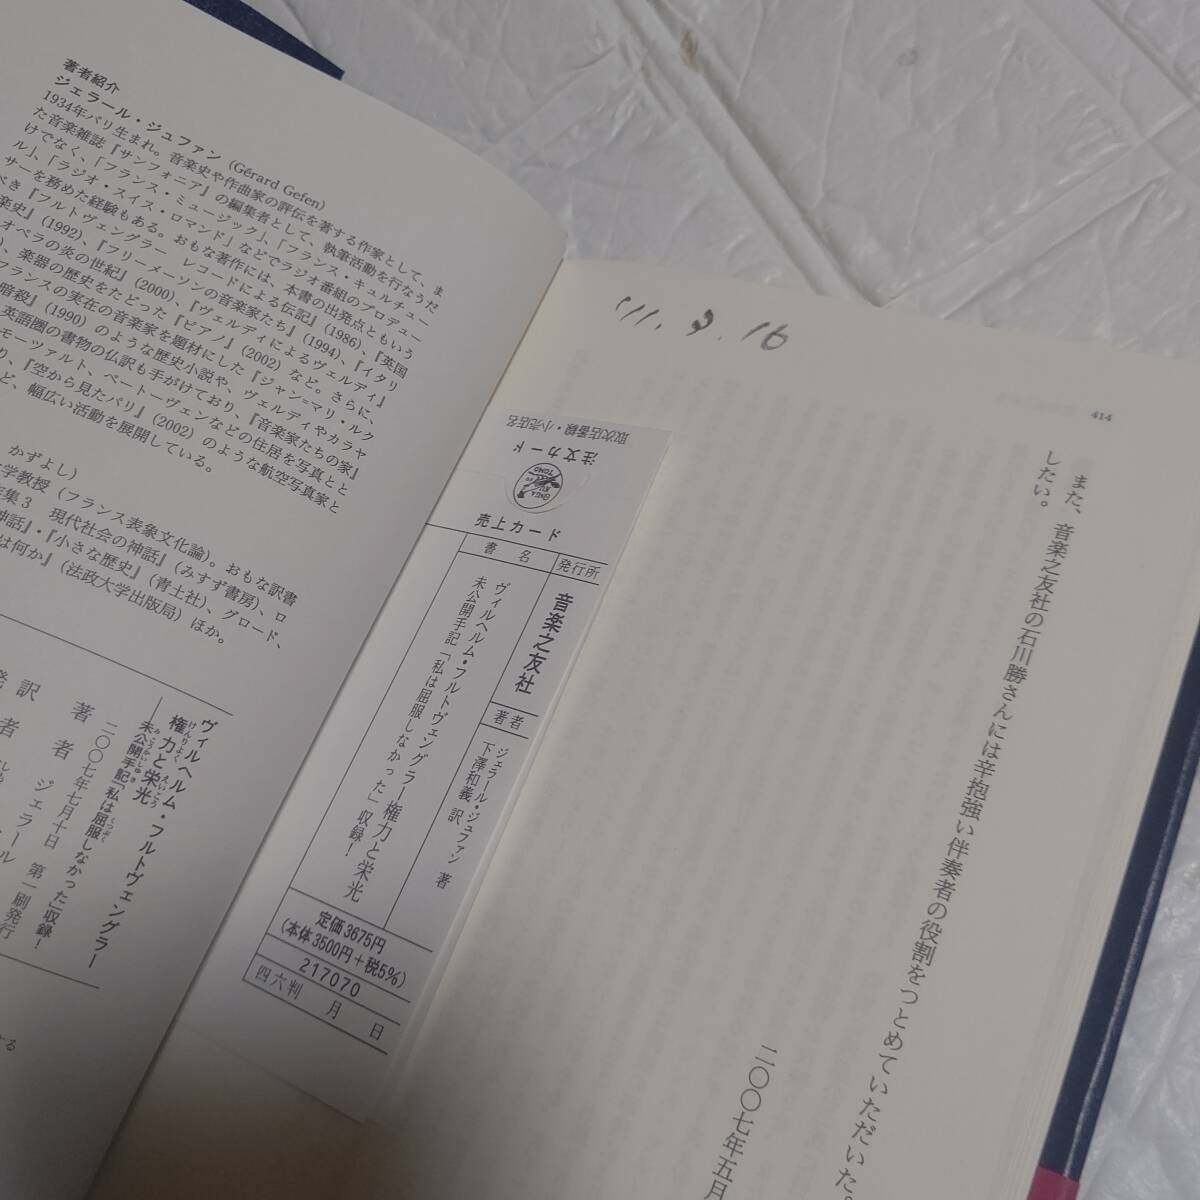 著者紹介
ジェラール・ジュファン (Gérard Gefen)
1934年パリ生まれ。音楽史や作曲家の評伝を著する作家として、ま
た音楽雑誌『サンフォニア』の編集者として、執筆活動を行なうだ
けでなく、「フランス・ミュージック」、「フランス・キュルチュー
ル」、「ラジオ・スイス・ロマンド」などでラジオ番組のプロデュー
サーを務めた経験もある。おもな著作には、本書の出発点ともいう
べき『フルトヴェングラー レコードによる伝記』(1986)、『英国
楽史』(1992)、『フリーメーソンの音楽家たち』(1994)、『イタリ
オペラの炎の世紀』(2000)、『ヴェルディによるヴェルディ』
、楽器の歴史をたどった『ピアノ』(2002) など。さらに、
フランスの実在の音楽家を題材にした『ジャン=マリ・ルク
暗殺』(1990) のような歴史小説や、ヴェルディやカラヤ
英語圏の書物の仏訳も手がけており、『音楽家たちの家』
モーツァルト、ベートーヴェンなどの住居を写真とと
り、『空から見たパリ』(2002) のような航空写真家と
ど、幅広い活動を展開している。
かずよし)
学教授（フランス表象文化論）。おもな訳書
集3 現代社会の神話』(みすず書房)、ロ
神話』・『小さな歴史』(青土社)、グロード、
は何か』(法政大学出版局) ほか。
ヴィルヘルム・フルトヴェングラー
権力と栄光
けんりょく えいこう
未公開手記「私は屈服しなかった」収録！
みこうかいしゅき くっぷく
二〇〇七年七月十日 第一刷発行
著者 ジェラール
訳者
取次店番線・小売店名
注文カード
ONGAKU NO TOMO
売上カード
発行所
音楽之友社
著者
ジェラール・ジュファン 著
下澤和義 訳
書名
ヴィルヘルム・フルトヴェングラー 権力と栄光
未公開手記「私は屈服しなかった」収録！
定価3675円
(本体3500円+税5%)
217070
四六判 月 日
414
また、音楽之友社の石川勝さんには辛抱強い伴奏者の役割をつとめていただいた。
したい。
二〇〇七年五月